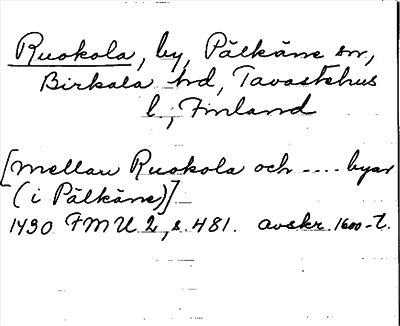 Ruokola, by, Pälkäne sn,
Birkala hd, Tavastehus
l, Finland
[mellan Ruokola och .... byar
(i Pälkäne)]
1430 FMU 2, s. 481. avskr. 1600-t.